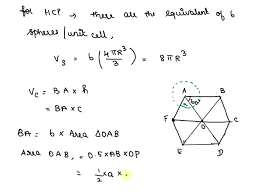 for HCP → there are the equivalent of 6
spheres/unit cell,
V_S = 6(4πR³/3) = 8πR³
V_C = BA × h
= BA × C
BA = 6 × Area △OAB
Area OAB, = 0.5×AB×OP
= 1/2 × a ×
A B
60°
F O C
E D